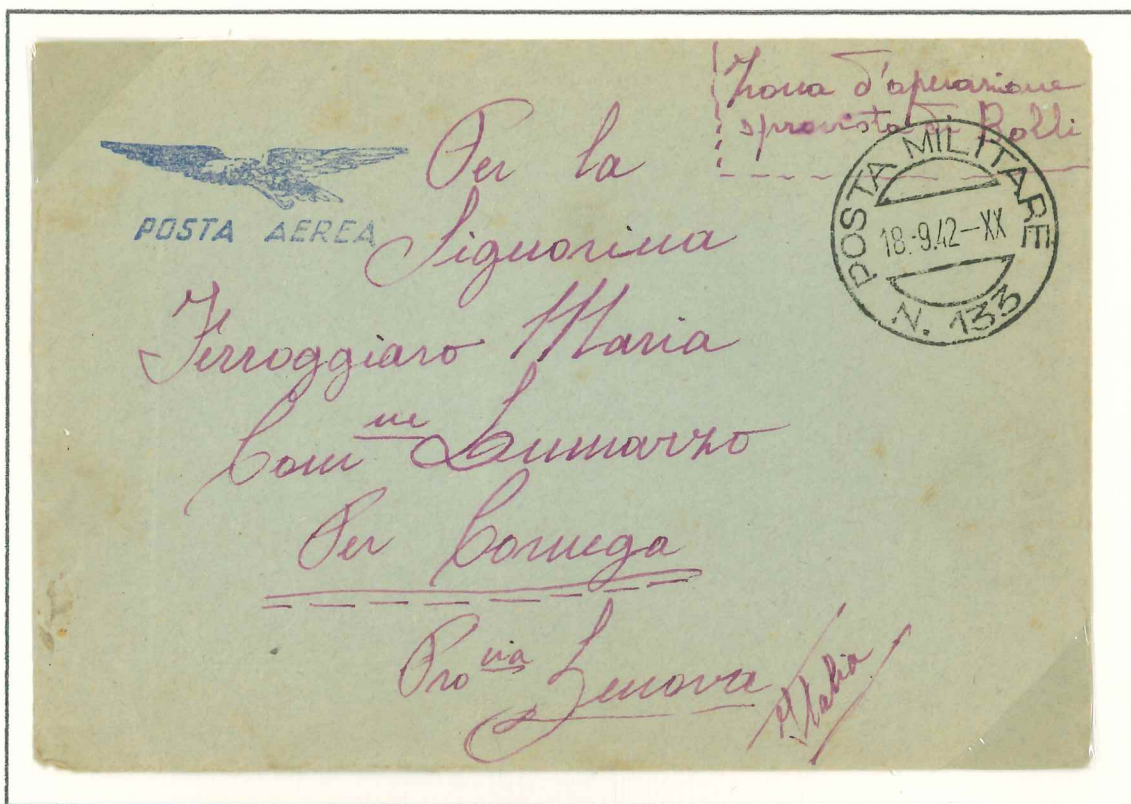 Zona d'operazione
sprovvisto di Bolli
POSTA AEREA
POSTA MILITARE
18.-9.42-XX
N. 133
Per la
Signorina
Ferroggiaro Maria
Com ne Lumarzo
Per Cornega
Pro via Genova
Italia